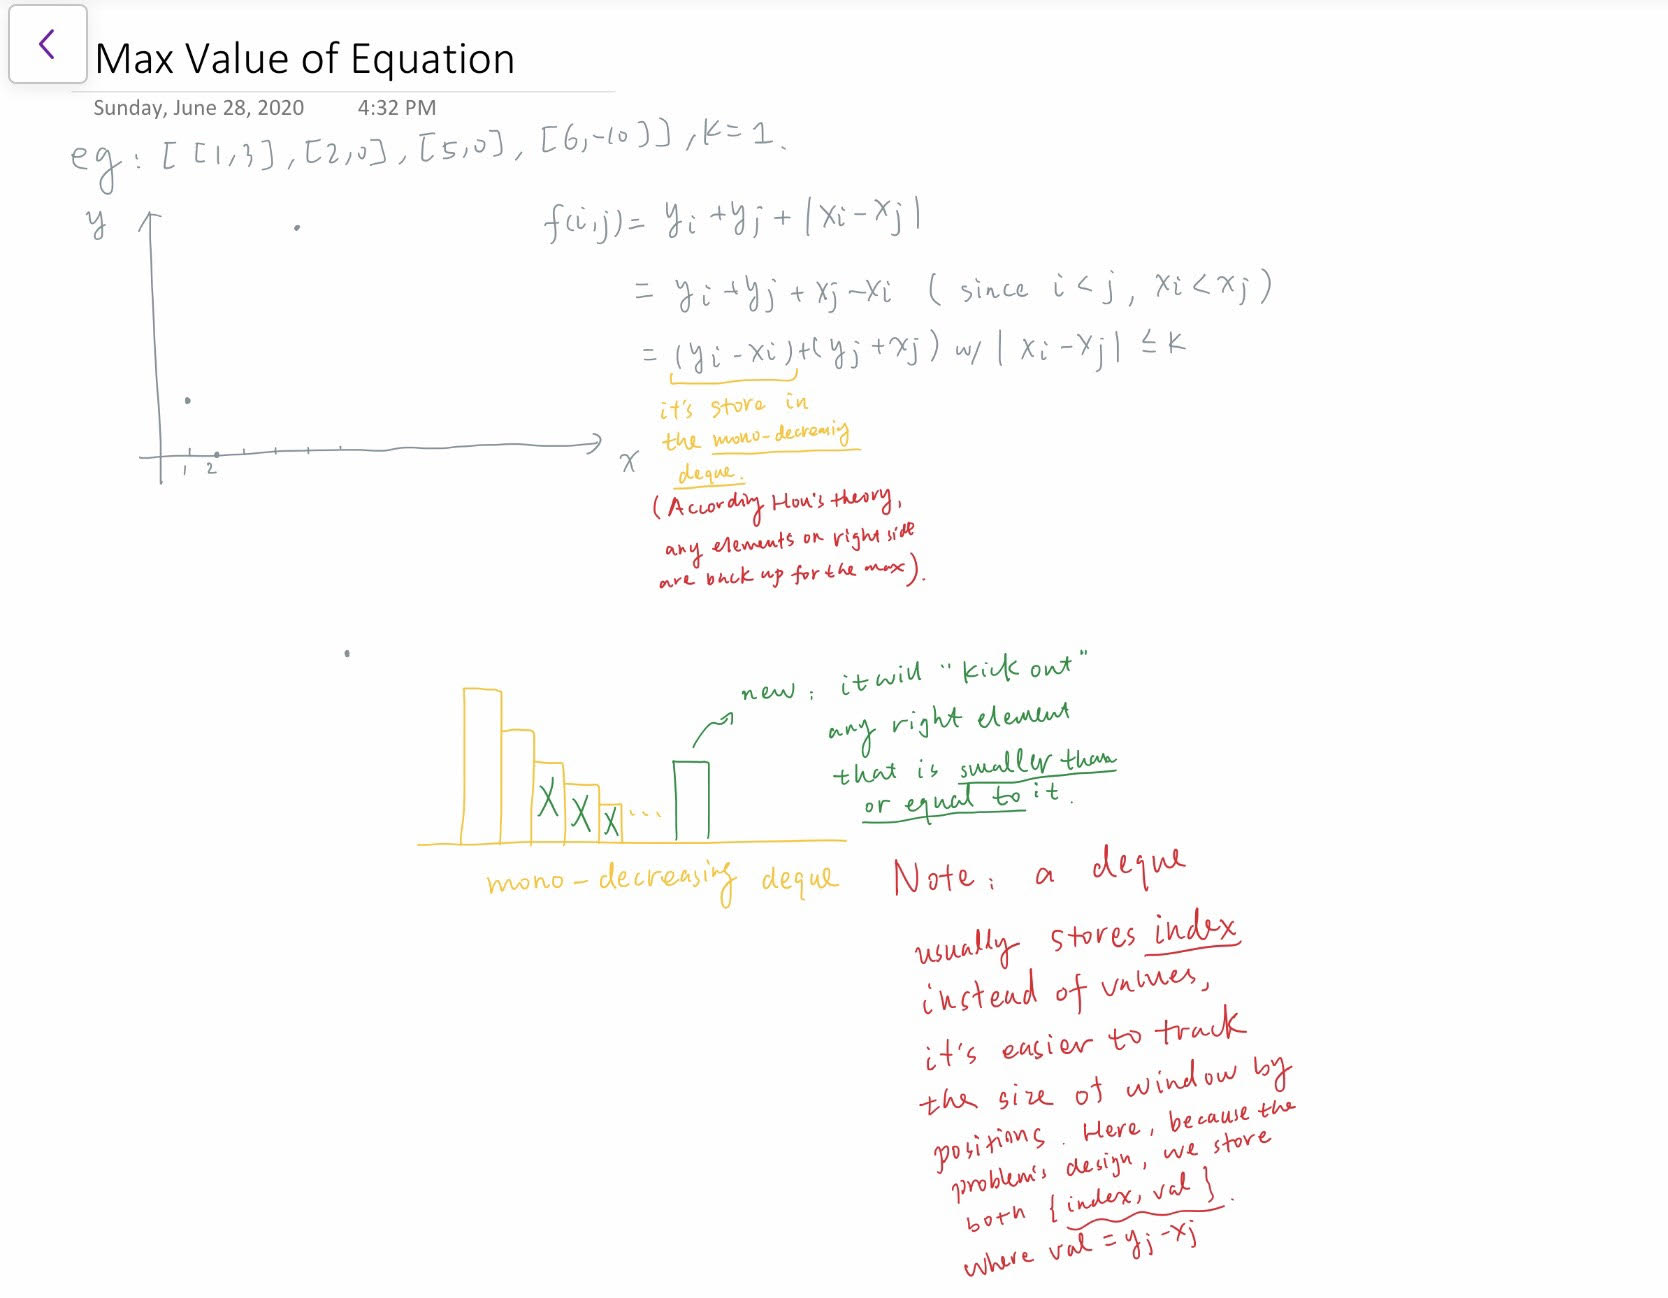 Max Value of Equation
Sunday, June 28, 2020 4:32 PM
eg: [[1,3],[2,0],[5,0],[6,-10]],k=1.
y
f(i,j)= yi+yj+|xi-xj|
= yi+yj+xj-xi (since i<j, xi<xj)
= (yi-xi)+(yj+xj) w/ |xi-xj| ≤ k
it's store in
the mono-decreamig
deque.
x
1 2
(According Hou's theory,
any elements on right side
are back up for the max).
new: it will "kick out"
any right element
that is smaller than
or equal to it.
X X X ...
mono-decreasing deque
Note: a deque
usually stores index
instead of values,
it's easier to track
the size of window by
positions. Here, because the
problem's design, we store
both {index, val}.
where val = yj-xj